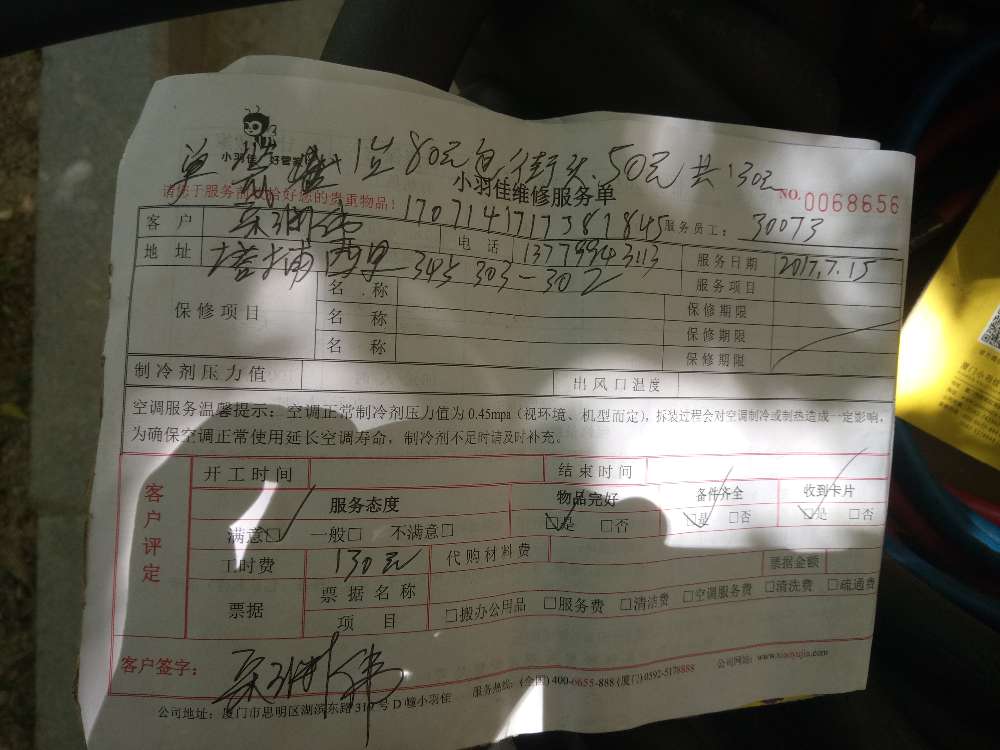 小羽佳 好管家
1位80元包街头.50元共130元
小羽佳维修服务单
NO.0068656
170714171738 7845
客户 电话 13779943113 服务员工: 30073
地址 塔埔西里 345 303-302 服务日期 2017.7.15
服务项目
保修项目 名称 保修期限
名称 保修期限
名称 保修期限
制冷剂压力值 出风口温度
空调服务温馨提示：空调正常制冷剂压力值为0.45mpa（视环境、机型而定），拆装过程会对空调制冷或制热造成一定影响，
为确保空调正常使用延长空调寿命，制冷剂不足时请及时补充。
客户评定
开工时间 结束时间
服务态度 物品完好 备件齐全 收到卡片
满意□ 一般□ 不满意□ □是 □否 □是 □否 □是 □否
工时费 130元 代购材料费 票据金额
票据 票据名称
项目 □搬办公用品 □服务费 □清洁费 □空调服务费 □清洗费 □疏通费
客户签字：
公司地址：厦门市思明区湖滨东路319号D幢小羽佳 服务热线：(全国) 400-0655-888 (厦门) 0592-5178888 公司网站：www.xiaoyujia.com